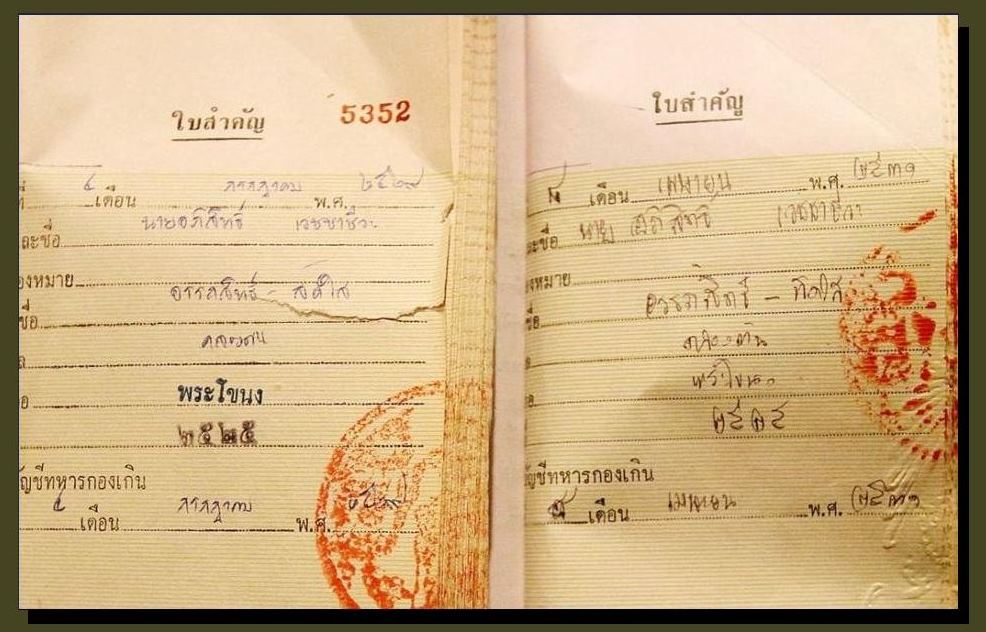 ใบสำคัญ 5352
ที่ ๔ เดือน กรกฎาคม พ.ศ. ๒๕๒๙
ละชื่อ นายอภิสิทธิ์ เวชชาชีวะ
องหมาย
ชื่อ อรรถสิทธิ์ - สดใส
ล คลองตัน
อ พระโขนง
๒๕๒๕
ัญชีทหารกองเกิน
๔ เดือน กรกฎาคม พ.ศ. ๒๕๒๙
ใบสำคัญ
๘ เดือน เมษายน พ.ศ. ๒๕๓๑
ละชื่อ นาย อภิสิทธิ์ เวชชาชีวะ
งหมาย
ชื่อ อรรถสิทธิ์ -
ล คลองตัน
อ พระโขนง
๒๕๒๕
ัญชีทหารกองเกิน
๘ เดือน เมษายน พ.ศ. ๒๕๓๑